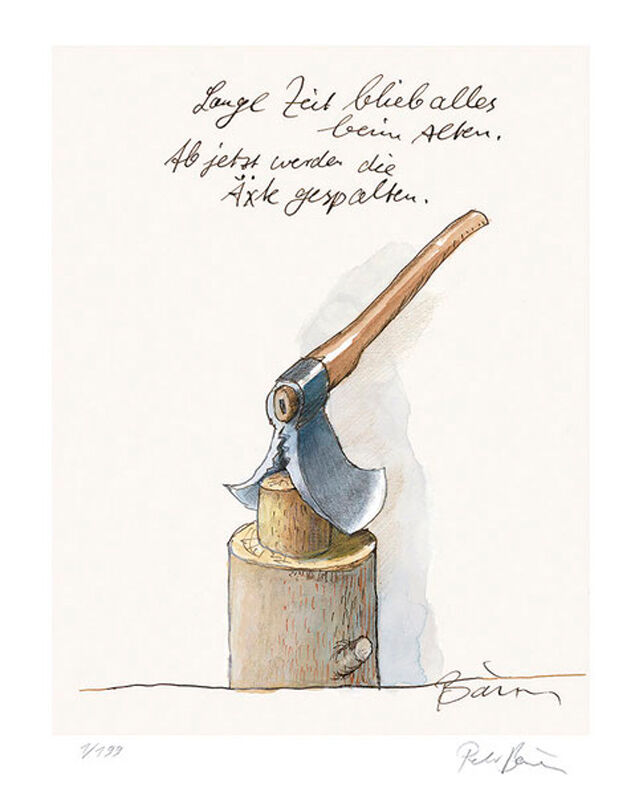 Lange Zeit blieb alles
beim Alten.
Ab jetzt werden die
Äxte gespalten.
1/199